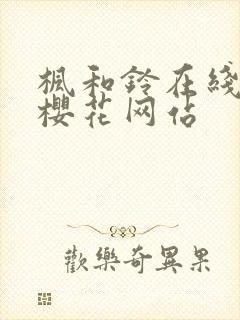 楓和鈴在綫
櫻花网站
歡樂奇異果